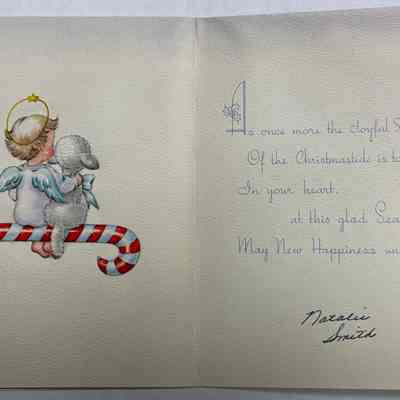 As once more the Joyful S
Of the Christmastide is to
In your heart,
at this glad Sea
May New Happiness un
Natalie
Smith